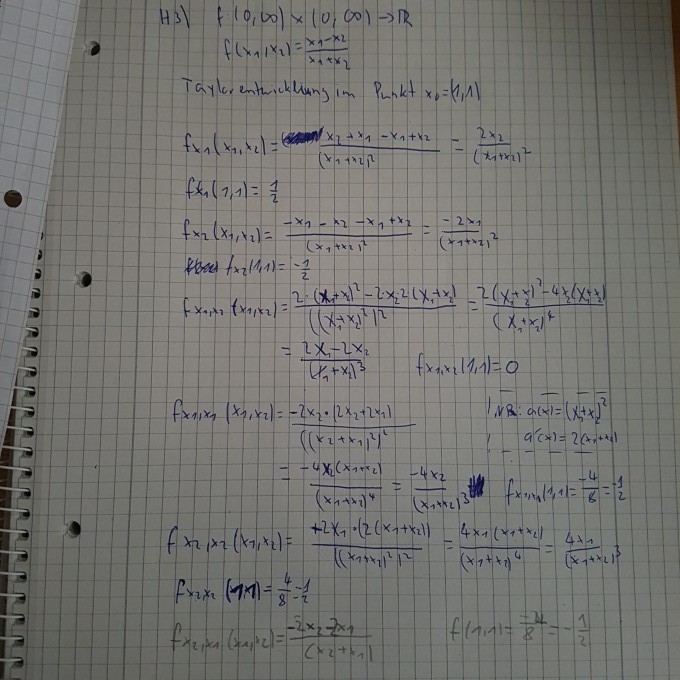 H3) f (0,∞) × (0,∞) → ℝ
f(x₁,x₂) = (x₁-x₂)/(x₁+x₂)
Taylorentwicklung im Punkt x₀=(1,1)
fx₁(x₁,x₂) = (x₂+x₁-x₁+x₂)/(x₁+x₂)² = 2x₂/(x₁+x₂)²
fx₁(1,1) = 1/2
fx₂(x₁,x₂) = (-x₁-x₂-x₁+x₂)/(x₁+x₂)² = -2x₁/(x₁+x₂)²
fx₂(1,1) = -1/2
fx₁,x₂(x₁,x₂) = (2·(x₁+x₂)²-2x₂2(x₁+x₂))/((x₁+x₂)²)² = (2(x₁+x₂)²-4x₂(x₁+x₂))/(x₁+x₂)⁴
= (2x₁-2x₂)/(x₁+x₂)³ fx₁,x₂(1,1)=0
fx₁,x₁(x₁,x₂) = (-2x₂·(2x₂+2x₁))/((x₂+x₁)²)² NR: a(x)=(x₁+x₂)²
a'(x)=2(x₁+x₂)
= (-4x₂(x₁+x₂))/(x₁+x₂)⁴ = -4x₂/(x₁+x₂)³ fx₁,x₁(1,1) = -4/8 = -1/2
fx₂,x₂(x₁,x₂) = (+2x₁·(2(x₁+x₂)))/((x₁+x₂)²)² = (4x₁(x₁+x₂))/(x₁+x₂)⁴ = 4x₁/(x₁+x₂)³
fx₂x₂(1,1) = 4/8 = 1/2
fx₂,x₁(x₁,x₂) = (-2x₂-2x₁)/(x₂+x₁) f(1,1) = -4/8 = -1/2